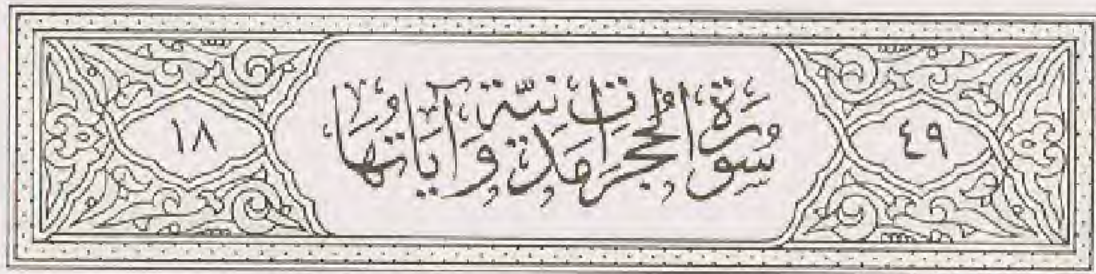 ٤٩
سُورَةُ الحُجُرَاتِ مَدَنِيَّةٌ وَآيَاتُهَا
١٨